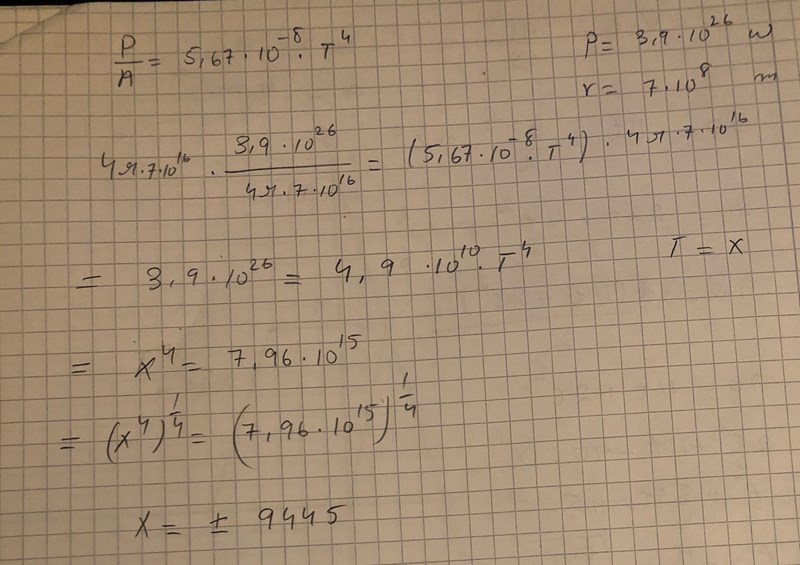 P/A = 5,67 · 10^-8 · T^4
P = 3,9 · 10^26 W
r = 7 · 10^8 m
4π · 7 · 10^16 · (3,9 · 10^26)/(4π · 7 · 10^16) = (5,67 · 10^-8 · T^4) · 4π · 7 · 10^16
= 3,9 · 10^26 = 4,9 · 10^10 · T^4
T = x
= x^4 = 7,96 · 10^15
= (x^4)^1/4 = (7,96 · 10^15)^1/4
x = ± 9445